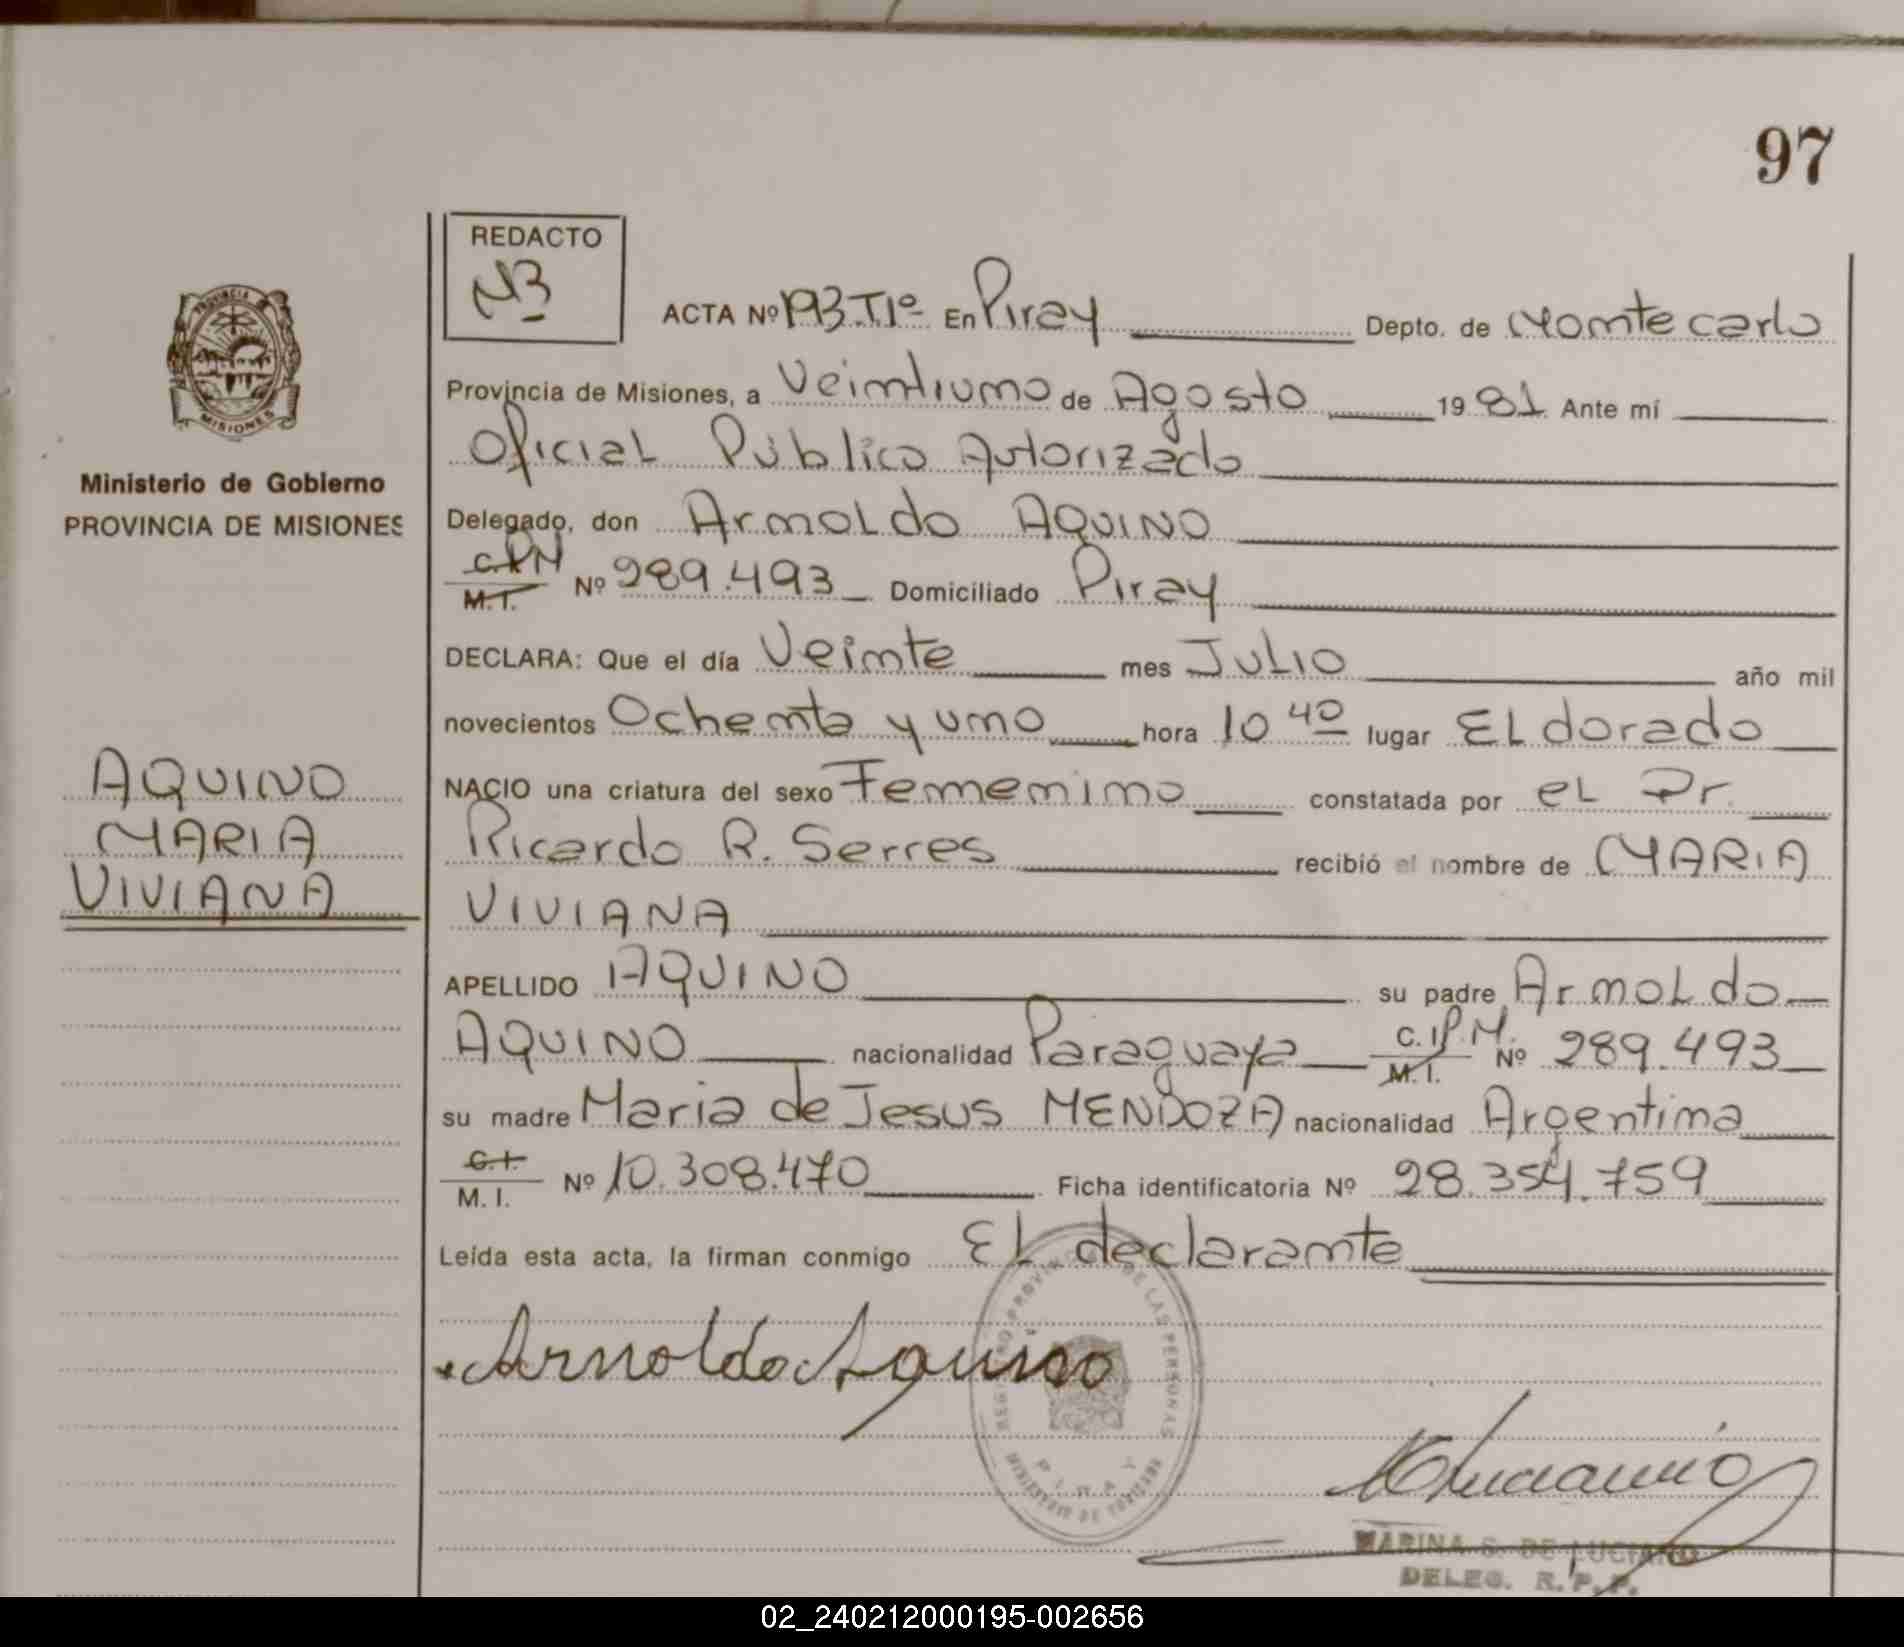 97
REDACTO
NB
ACTA Nº 193.TIº En Piray Depto. de Montecarlo
Provincia de Misiones, a Veintiuno de Agosto 1981 Ante mí
Oficial Público Autorizado
Delegado, don Arnoldo AQUINO
C.P.N M.I. Nº 289.493 Domiciliado Piray
DECLARA: Que el día Veinte mes Julio año mil
novecientos Ochenta y uno hora 10 40 lugar ELdorado
NACIO una criatura del sexo Femenino constatada por el Dr.
Ricardo R. Serres recibió el nombre de MARIA
VIVIANA
APELLIDO AQUINO su padre Arnoldo
AQUINO nacionalidad Paraguaya C.I.P.M. M.I. Nº 289.493
su madre Maria de Jesus MENDOZA nacionalidad Argentina
C.I. M.I. Nº 10.308.470 Ficha identificatoria Nº 28.354.759
Leída esta acta, la firman conmigo El declarante
Arnoldo Aquino
REGISTRO PROVINCIAL DE LAS PERSONAS
PIRAY
MINISTERIO DE GOBIERNO
MARINA S. DE LUCIANO
DELEG. R.P.P.
PROVINCIA DE
MISIONES
Ministerio de Gobierno
PROVINCIA DE MISIONES
AQUINO
MARIA
VIVIANA
02_240212000195-002656